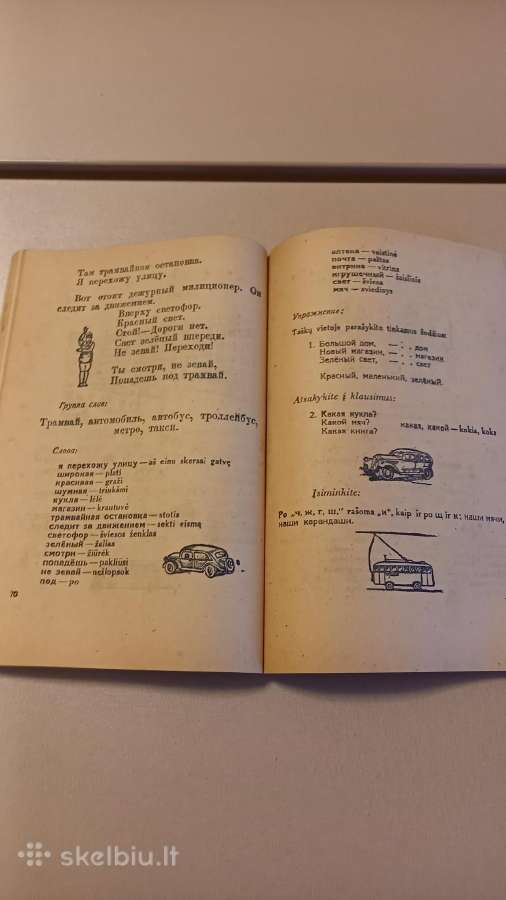 Там трамвайная остановка.
Я перехожу улицу.
Вот стоит дежурный милиционер. Он
следит за движением.
Вверху светофор,
Красный свет.
Стой!—Дороги нет,
Свет зелёный впереди.
Не зевай! Переходи!
Ты смотри, не зевай,
Попадешь под трамвай.
Группа слов:
Трамвай, автомобиль, автобус, троллейбус,
метро, такси.
Слова:
я перехожу улицу—aš einu skersai gatvę
широкая — plati
красивая — graži
шумная — triukšminga
кукла — lėlė
магазин — krautuvė
трамвайная остановка — stotis
следит за движением — sekti eismą
светофор — šviesos ženklas
зелёный — žalias
смотри — žiūrėk
попадёшь — pakliūsi
не зевай — nežiopsok
под — po
70
аптека — vaistinė
почта — paštas
витрина — vitrina
игрушечный — žaislinis
свет — šviesa
мяч — sviedinys
Упражнение:
Taškų vietoje parašykite tinkamus žodžius
1. Большой дом, — . . дом
Новый магазин, — . . магазин
Зелёный свет, — . . свет
Красный, маленький, зелёный.
Atsakykite į klausimus:
2. Какая кукла?
Какой мяч?
Какая книга?
какая, какой — kokia, koks
Įsiminkite:
Po „ч, ж, г, ш," rašoma „и", kaip ir po щ ir к; наши мячи,
наши карандаши.
skelbiu.lt